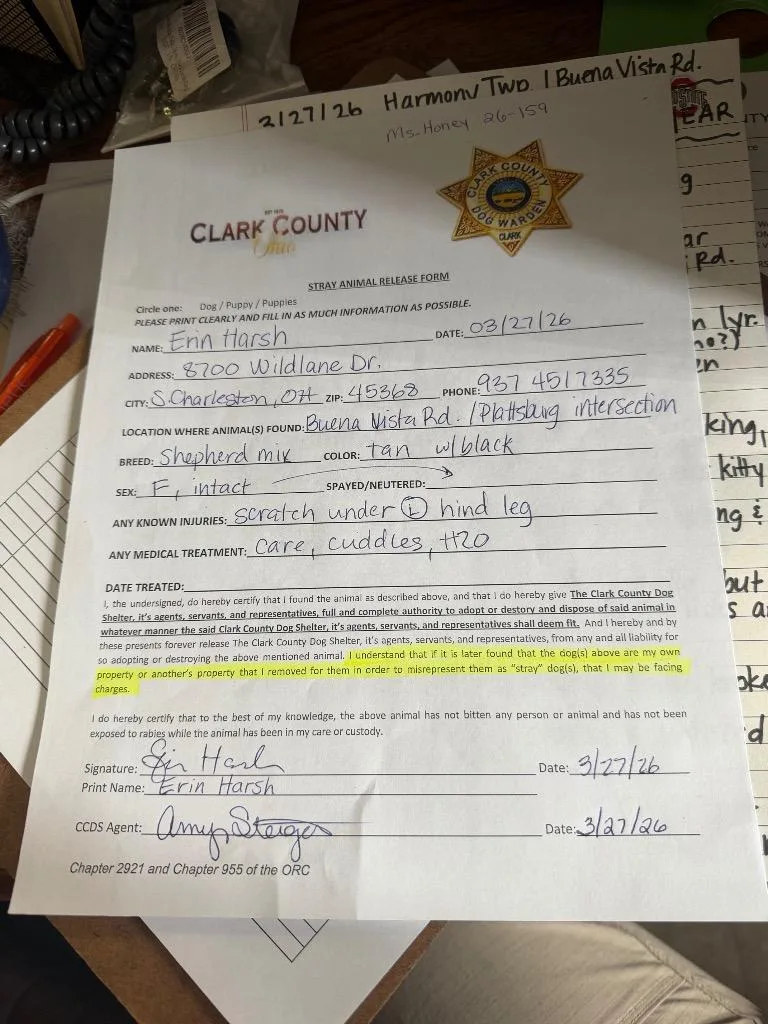 3/27/26 Harmony Two. / Buena Vista Rd.
Ms. Honey 26-159
EAR
CLARK COUNTY
Ohio
CLARK COUNTY
DOG WARDEN
CLARK
STRAY ANIMAL RELEASE FORM
Circle one: Dog / Puppy / Puppies
PLEASE PRINT CLEARLY AND FILL IN AS MUCH INFORMATION AS POSSIBLE.
NAME: Erin Harsh DATE: 03/27/26
ADDRESS: 8700 Wildlane Dr.
CITY: S. Charleston, OH ZIP: 45368 PHONE: 937 4517335
LOCATION WHERE ANIMAL(S) FOUND: Buena Vista Rd. / Plattsburg intersection
BREED: Shepherd mix COLOR: tan w/black
SEX: F, intact SPAYED/NEUTERED:
ANY KNOWN INJURIES: scratch under L hind leg
ANY MEDICAL TREATMENT: Care, cuddles, H20
DATE TREATED:
I, the undersigned, do hereby certify that I found the animal as described above, and that I do hereby give The Clark County Dog
Shelter, it's agents, servants, and representatives, full and complete authority to adopt or destory and dispose of said animal in
whatever manner the said Clark County Dog Shelter, it's agents, servants, and representatives shall deem fit. And I hereby and by
these presents forever release The Clark County Dog Shelter, it's agents, servants, and representatives, from any and all liability for
so adopting or destroying the above mentioned animal. I understand that if it is later found that the dog(s) above are my own
property or another's property that I removed for them in order to misrepresent them as "stray" dog(s), that I may be facing
charges.
I do hereby certify that to the best of my knowledge, the above animal has not bitten any person or animal and has not been
exposed to rabies while the animal has been in my care or custody.
Signature: Erin Harsh Date: 3/27/26
Print Name: Erin Harsh
CCDS Agent: Amy Steiger Date: 3/27/26
Chapter 2921 and Chapter 955 of the ORC
g
ar
Rd.
n 1yr.
no?)
en
king,
kitty
ng &
but
s a
oke
d